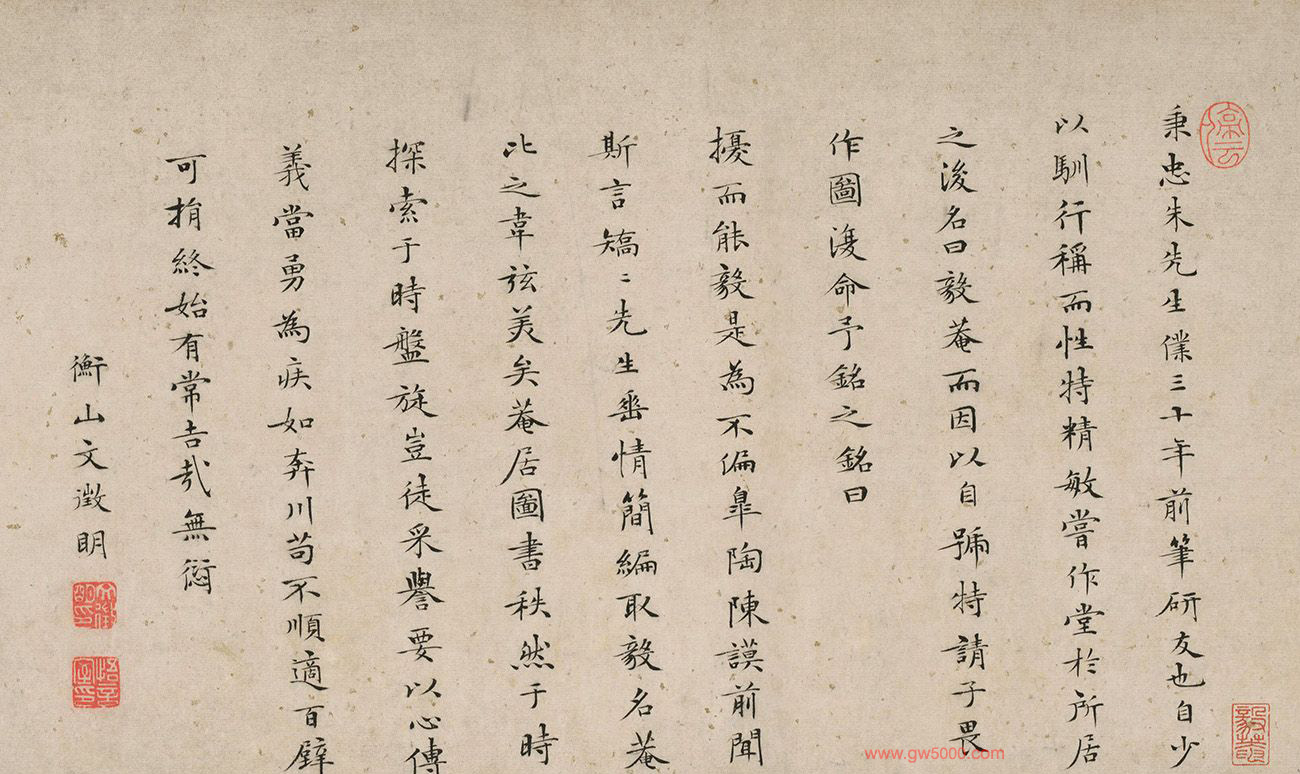 秉忠朱先生僕三十年前筆研友也自少
以馴行稱而性特精敏嘗作堂於所居
之後名曰毅菴而因以自號特請子畏
作圖復命予銘之銘曰
擾而能毅是為不偏皐陶陳謨前聞
斯言矯〻先生垂情簡編取毅名菴
比之韋弦美矣菴居圖書秩然于時
探索于時盤旋豈徒采譽要以心傳
義當勇為疾如奔川苟不順適百辟
可捐終始有常吉哉無愆
衡山文徵明
文徵明印
悟言室印
毅菴
www.gw5000.com